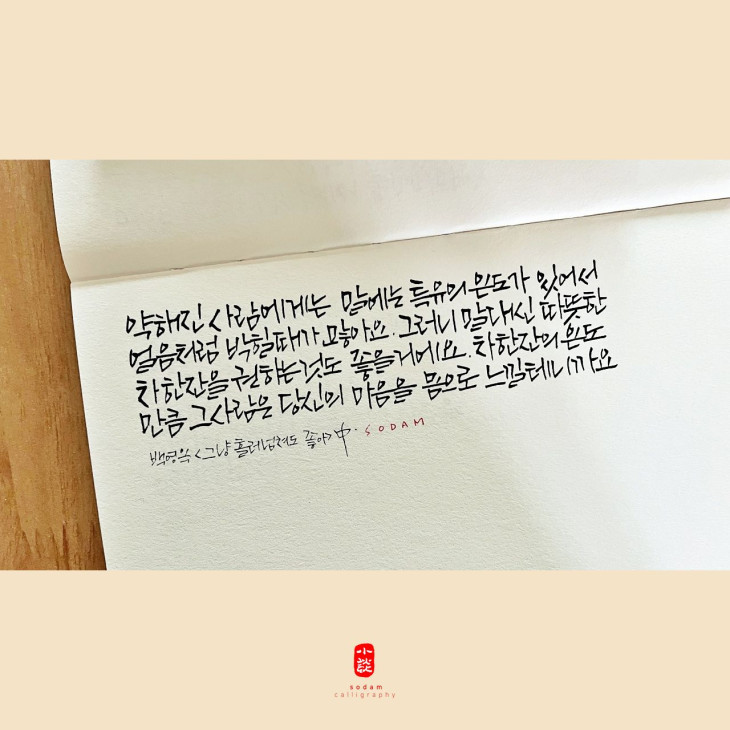 약해진 사람에게는 말에는 특유의 온도가 있어서
얼음처럼 박힐때가 많아요. 그러니 말대신 따뜻한
차한잔을 권하는것도 좋을거에요. 차한잔의 온도
만큼 그사람은 당신의 마음을 몸으로 느낄테니까요
백영옥 <그냥 흘러넘쳐도 좋아> 中. SODAM
小
sodam
calligraphy